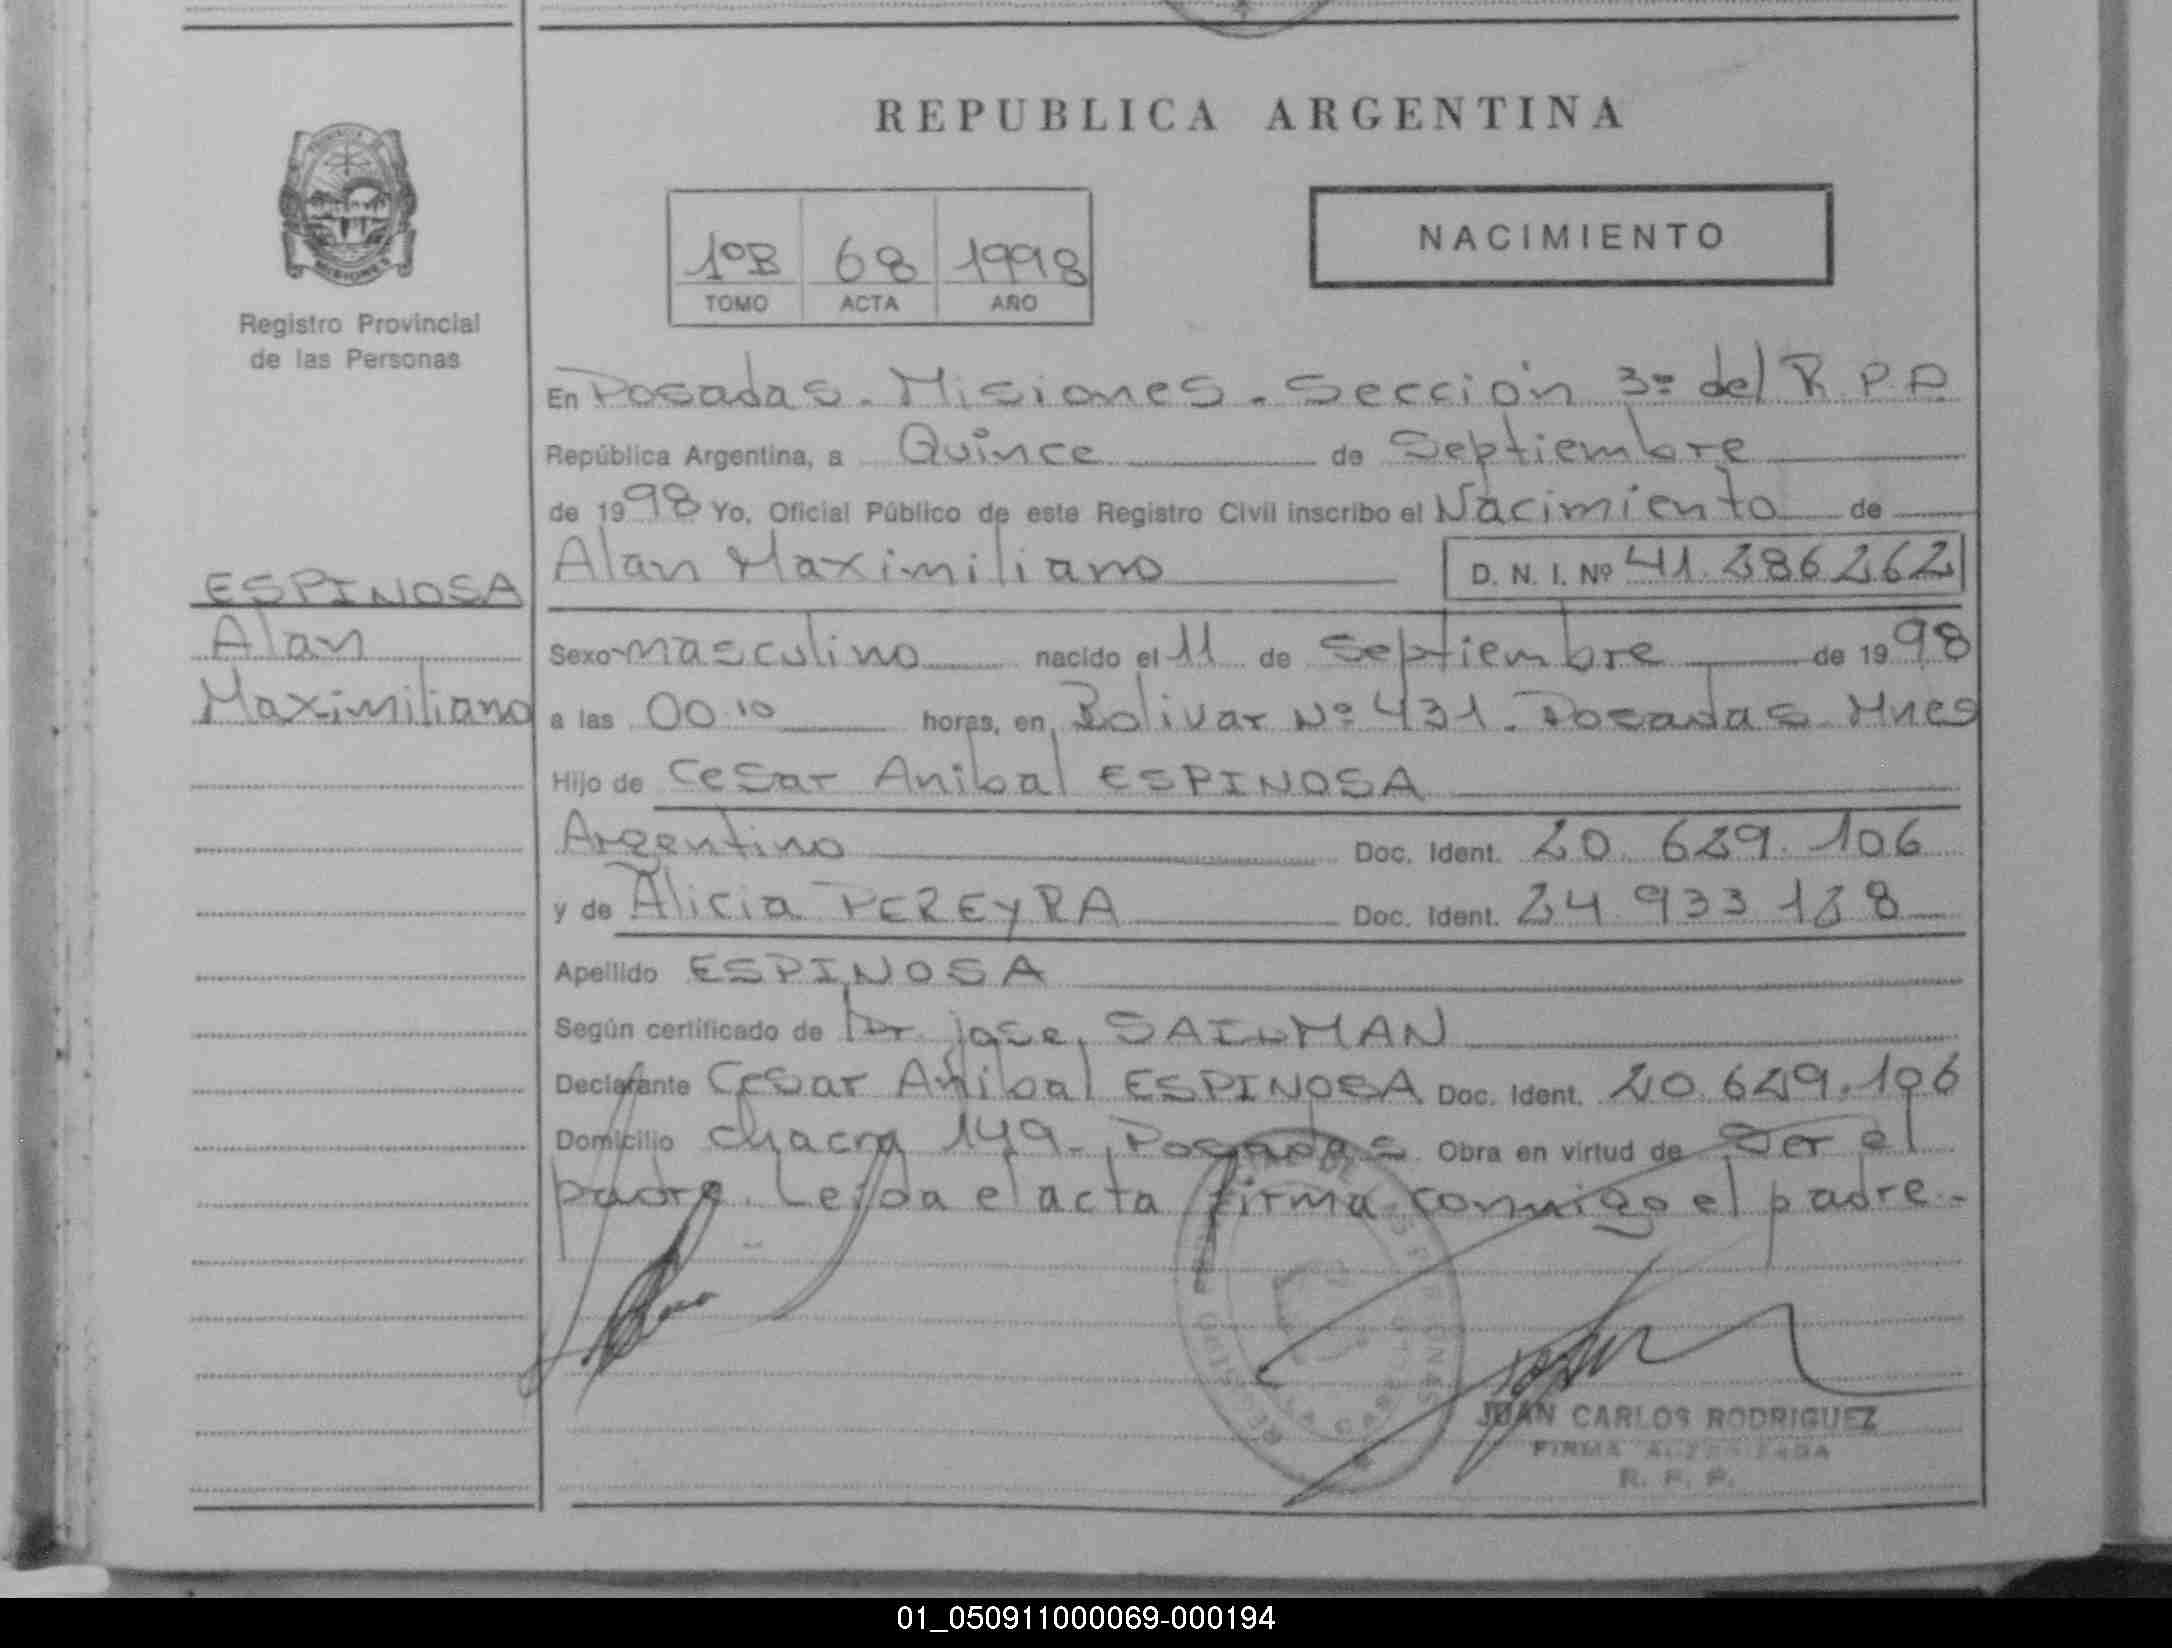 REPUBLICA ARGENTINA
1ºB 68 1998
TOMO ACTA AÑO
NACIMIENTO
MISIONES
Registro Provincial
de las Personas
En Posadas. Misiones. Sección 3ª del R.P.P.
República Argentina, a Quince de Septiembre
de 1998 Yo, Oficial Público de este Registro Civil inscribo el Nacimiento de
Alan Maximiliano D. N. I. Nº 41.286262
ESPINOSA
Alan
Maximiliano
Sexo masculino nacido el 11 de Septiembre de 1998
a las 00.10 horas, en Bolivar Nº 431. Posadas Mnes
Hijo de Cesar Anibal ESPINOSA
Argentino Doc. Ident. 20.629.106
y de Alicia PEREYRA Doc. Ident. 24 933 128
Apellido ESPINOSA
Según certificado de Dr. Jose
Declarante Cesar Anibal ESPINOSA Doc. Ident. 20.629.106
Domicilio chacra 149. Posadas Obra en virtud de Ser el
padre. Leida el acta firma conmigo el padre.
JUAN CARLOS RODRIGUEZ
FIRMA AUTORIZADA
R. P. P.
01_050911000069-000194